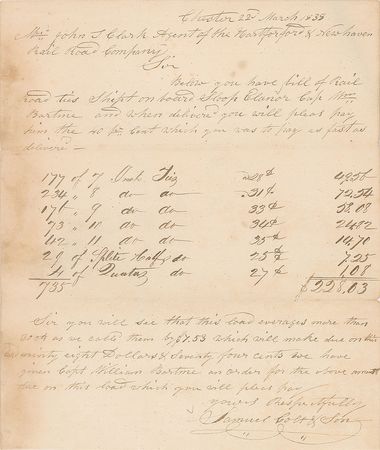 Chester 22d March 1838
Mr John S Clark Agent of the Hartford & New haven
Rail Road Company
Sir
Below you have bill of Rail
Road ties Shipt on board Sloop Elanor Cap Wm
Bartine and when deliverd you will pleas pay
him the 40 pr Cent which you was to pay as fast as
deliverd —
177 of 7 Inch Ties 28¢ 49.56
234 " 8 do do 31¢ 72.54
176 " 9 do do 33¢ 58.08
73 " 10 do do 34¢ 24.82
42 " 11 do do 35¢ 14.70
29 of Split Half do 25¢ 7.25
4 of do 27¢ 1.08
735 $228.03
Sir you will see that this load averages more than
as we calld them by $7.53 which will make due on this
ninty eight Dollars & Seventy four cents we have
given Capt William Bartine an order for the above amt
due on this load which you will pleas pay
yours Respectfully
Samuel Colt & Son